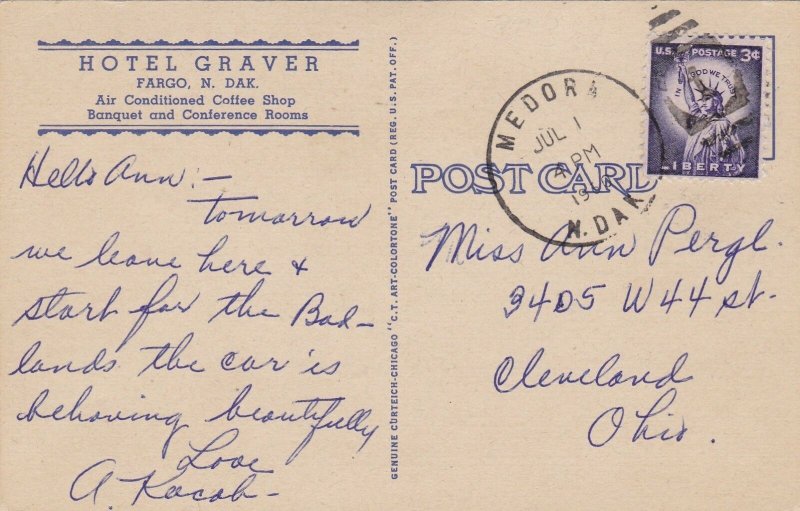 HOTEL GRAVER
FARGO, N. DAK.
Air Conditioned Coffee Shop
Banquet and Conference Rooms
Hello Ann:—
tomorrow
we leave here &
start for the Bad-
lands the car is
behaving beautifully
Love
A. Kacab-
GENUINE CURTEICH-CHICAGO "C.T. ART-COLORTONE" POST CARD (REG. U.S. PAT. OFF.)
POST CARD
MEDORA
JUL 1
4 PM
N. DAK.
U.S. POSTAGE 3¢
IN GOD WE TRUST
LIBERTY
Miss Ann Pergl.
3405 W 44 st-
Cleveland
Ohio.